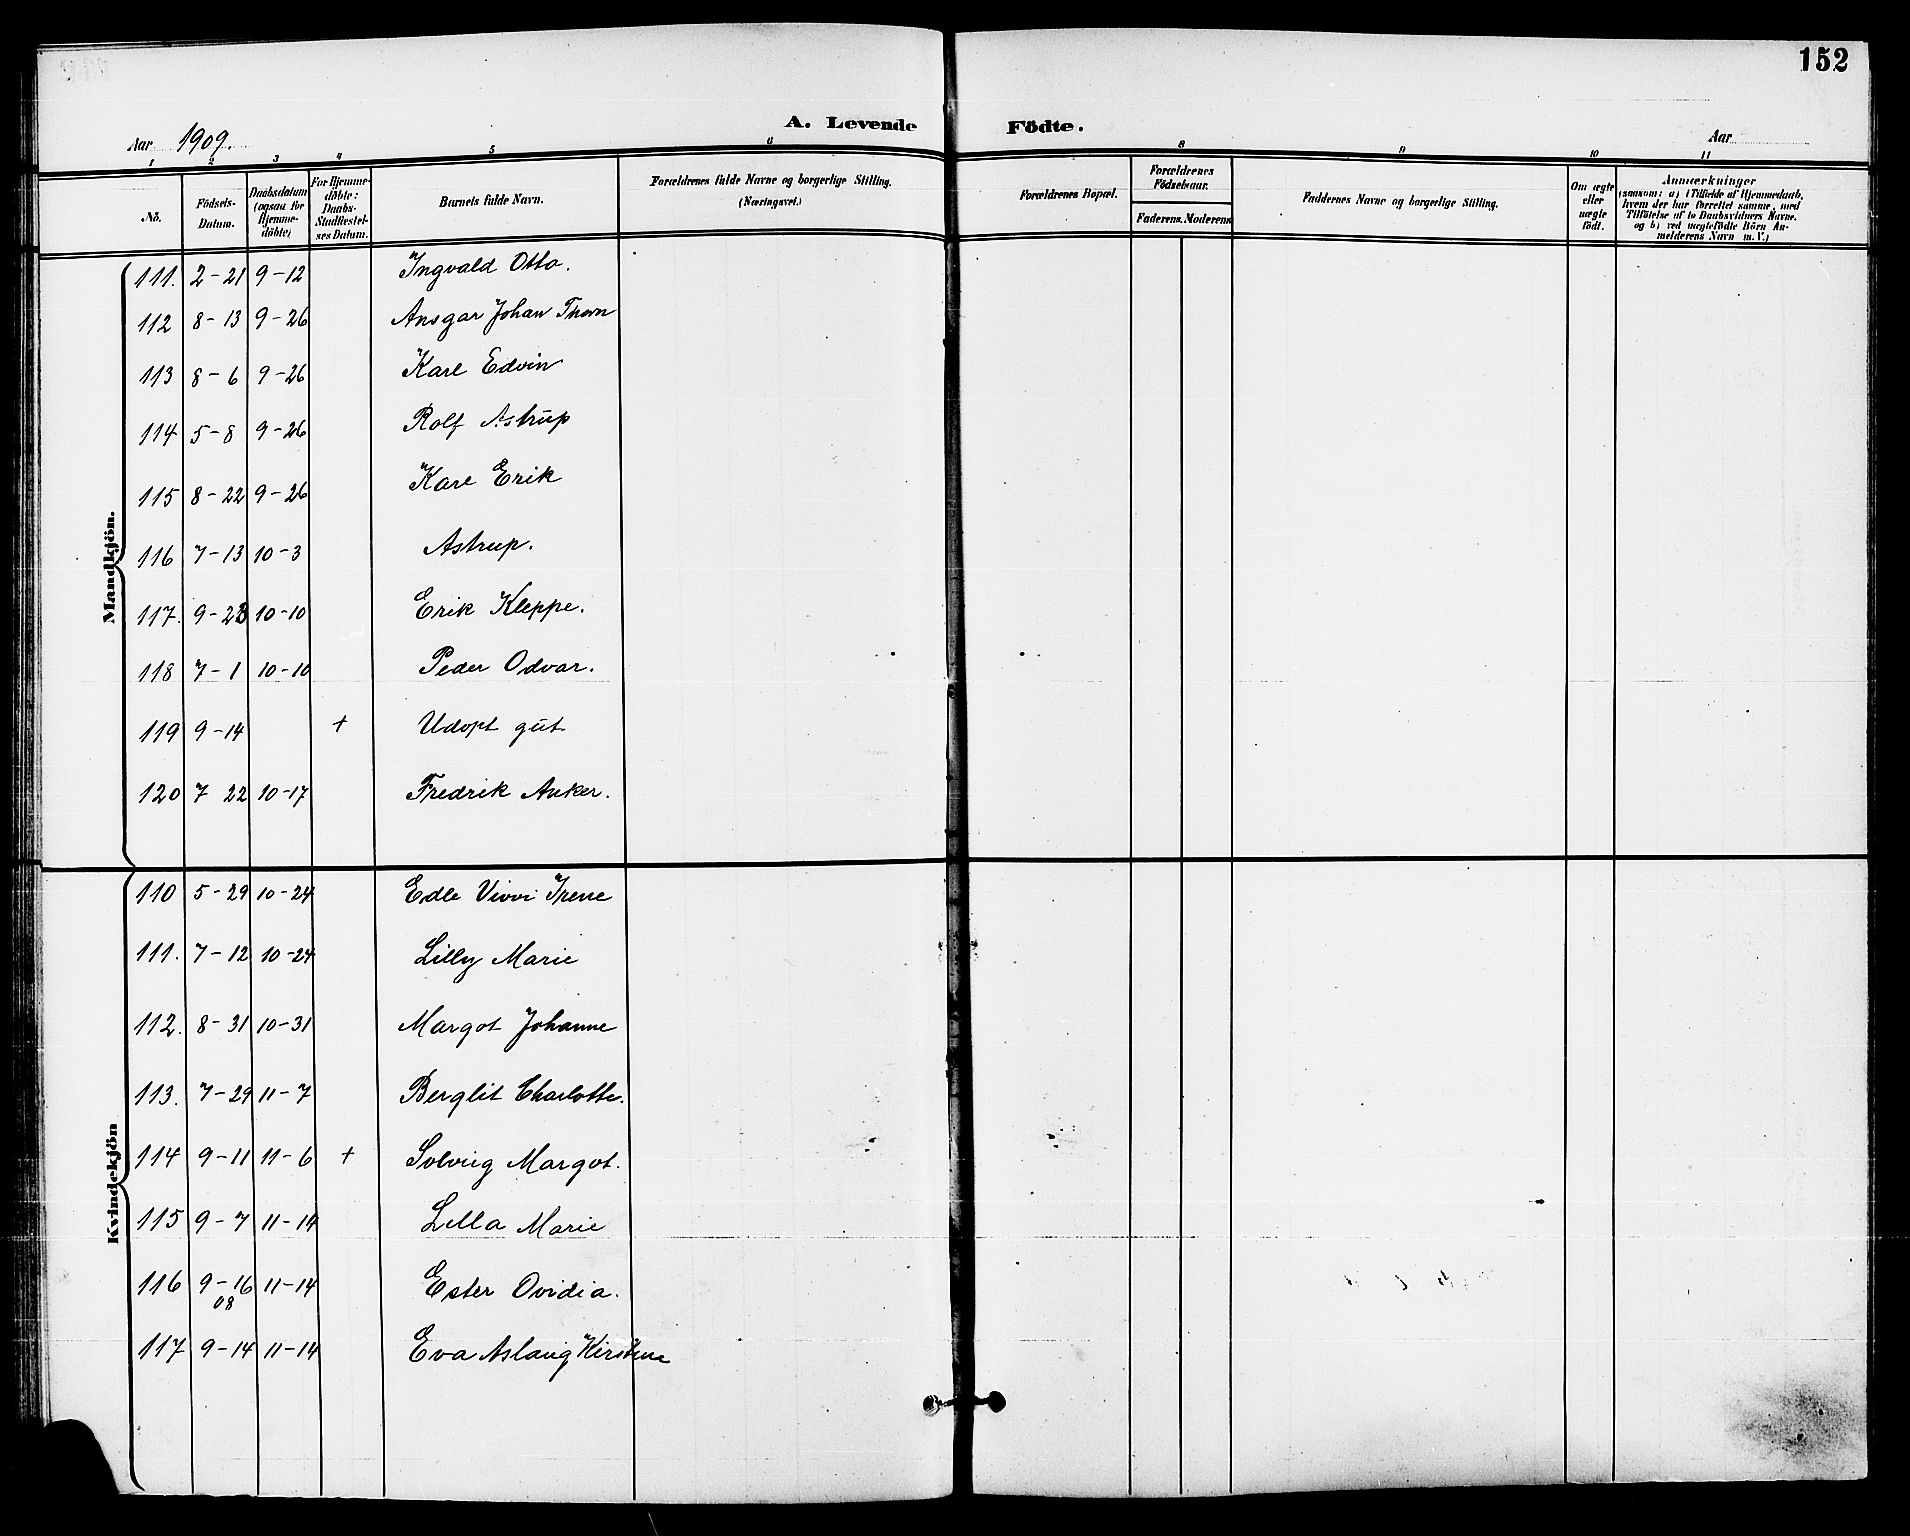 152
A. Levende Födte.
Aar 1909.
Aar
1 2 3 4 5 6 8 9 10 11
No.
Födsels-Datum.
Daabsdatum (ogsaa for Hjemme-döbte)
For Hjemme-döbte: Daabs-Stadfæstel-ses Datum.
Barnets fulde Navn.
Forældrenes fulde Navne og borgerlige Stilling. (Næringsvei.)
Forældrenes Bopæl.
Forældrenes Födselsaar.
Faderens. Moderens.
Faddernes Navne og borgerlige Stilling.
Om ægte eller uægte födt.
Anmærkninger
(saasom: a) i Tilfælde af Hjemmedaab, hvem der har forrettet samme, med Tilföielse af to Daabsvidners Navne. og b) ved uægtefödte Börn An-melderens Navn m. V.)
Mandkjön.
111. 2-21 9-12 Ingvald Otto.
112 8-13 9-26 Ansgar Johan Thorn
113 8-6 9-26 Kare Edvin
114 5-8 9-26 Rolf Astrup
115 8-22 9-26 Kare Erik
116 7-13 10-3 Astrup.
117. 9-23 10-10 Erik Kleppe.
118 7-1 10-10 Peder Odvar.
119 9-14 + Udopt gut
120 7 22 10-17 Fredrik Anker.
Kvindekjön
110 5-29 10-24 Edle Vivvi Irene
111. 7-12 10-24 Lilly Marie
112. 8-31 10-31 Margot Johanne
113. 7-29 11-7 Berglit Charlotte.
114 9-11 11-6 + Solveig Margot.
115 9-7 11-14 Lilla Marie
116 9-16 11-14 Ester Ovidia.
08
117 9-14 11-14 Eva Aslaug Kirstine